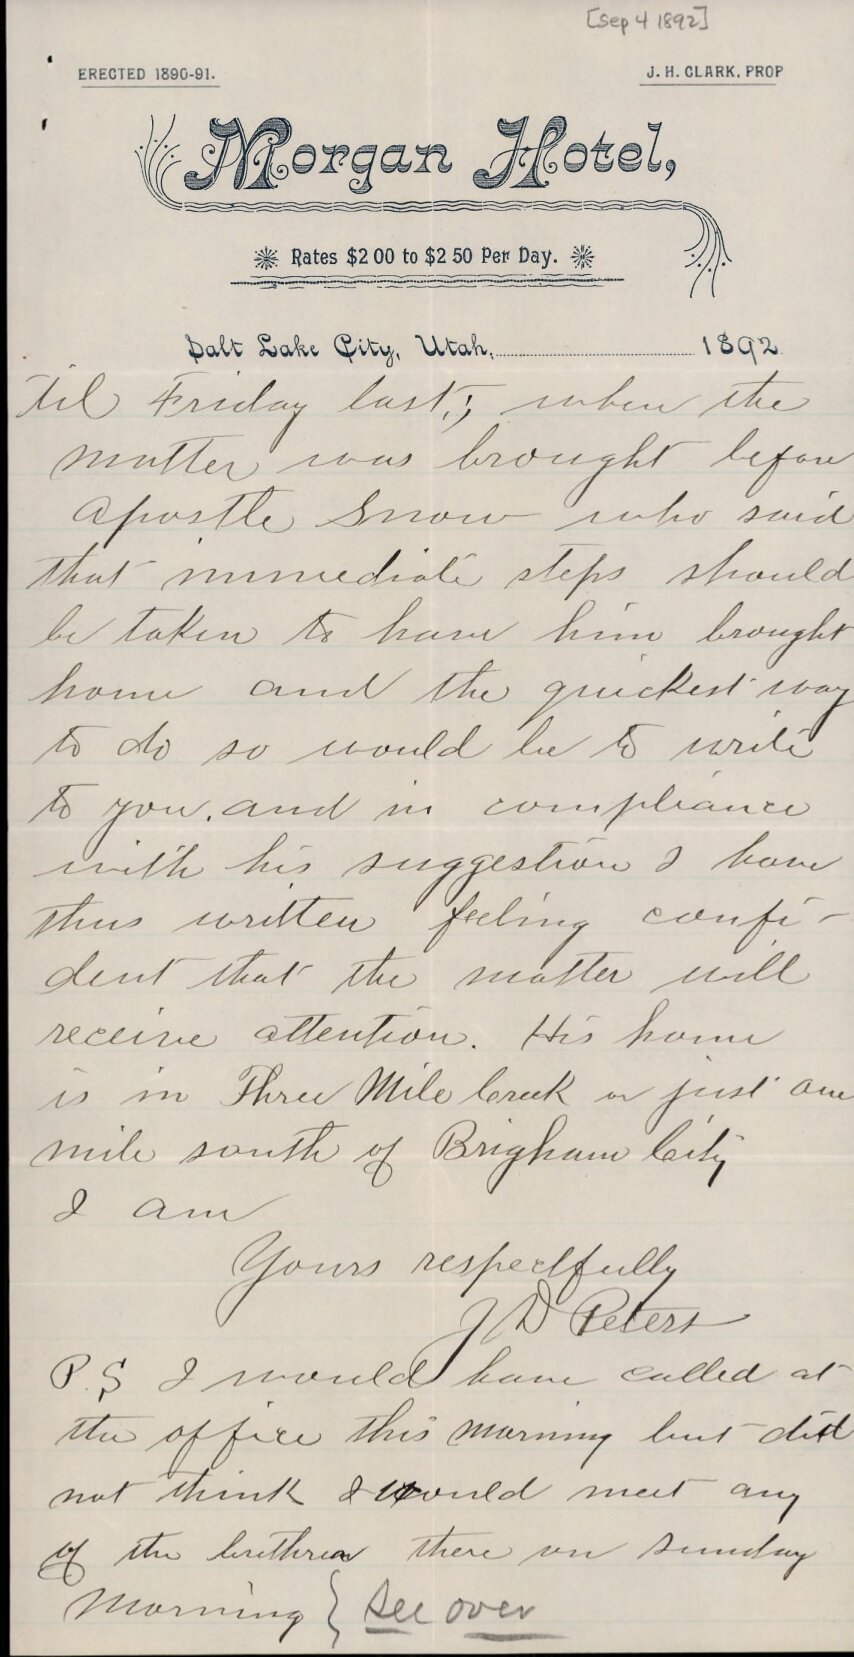 [Sep 4 1892]
ERECTED 1890-91.
J. H. CLARK, PROP
Morgan Hotel,
Rates $2 00 to $2 50 Per Day.
Salt Lake City, Utah, 1892
til Friday last; when the
matter was brought before
Apostle Snow who said
that immediate steps should
be taken to have him brought
home and the quickest way
to do so would be to write
to you. and in compliance
with his suggestion I have
thus written feeling confi-
dent that the matter will
receive attention. His home
is in Three Mile Creek or just one
mile south of Brigham City
I am
Yours respectfully
J D Peters
P.S I would have called at
the office this morning but did
not think I would meet any
of the brethren there on Sunday
Morning } See over